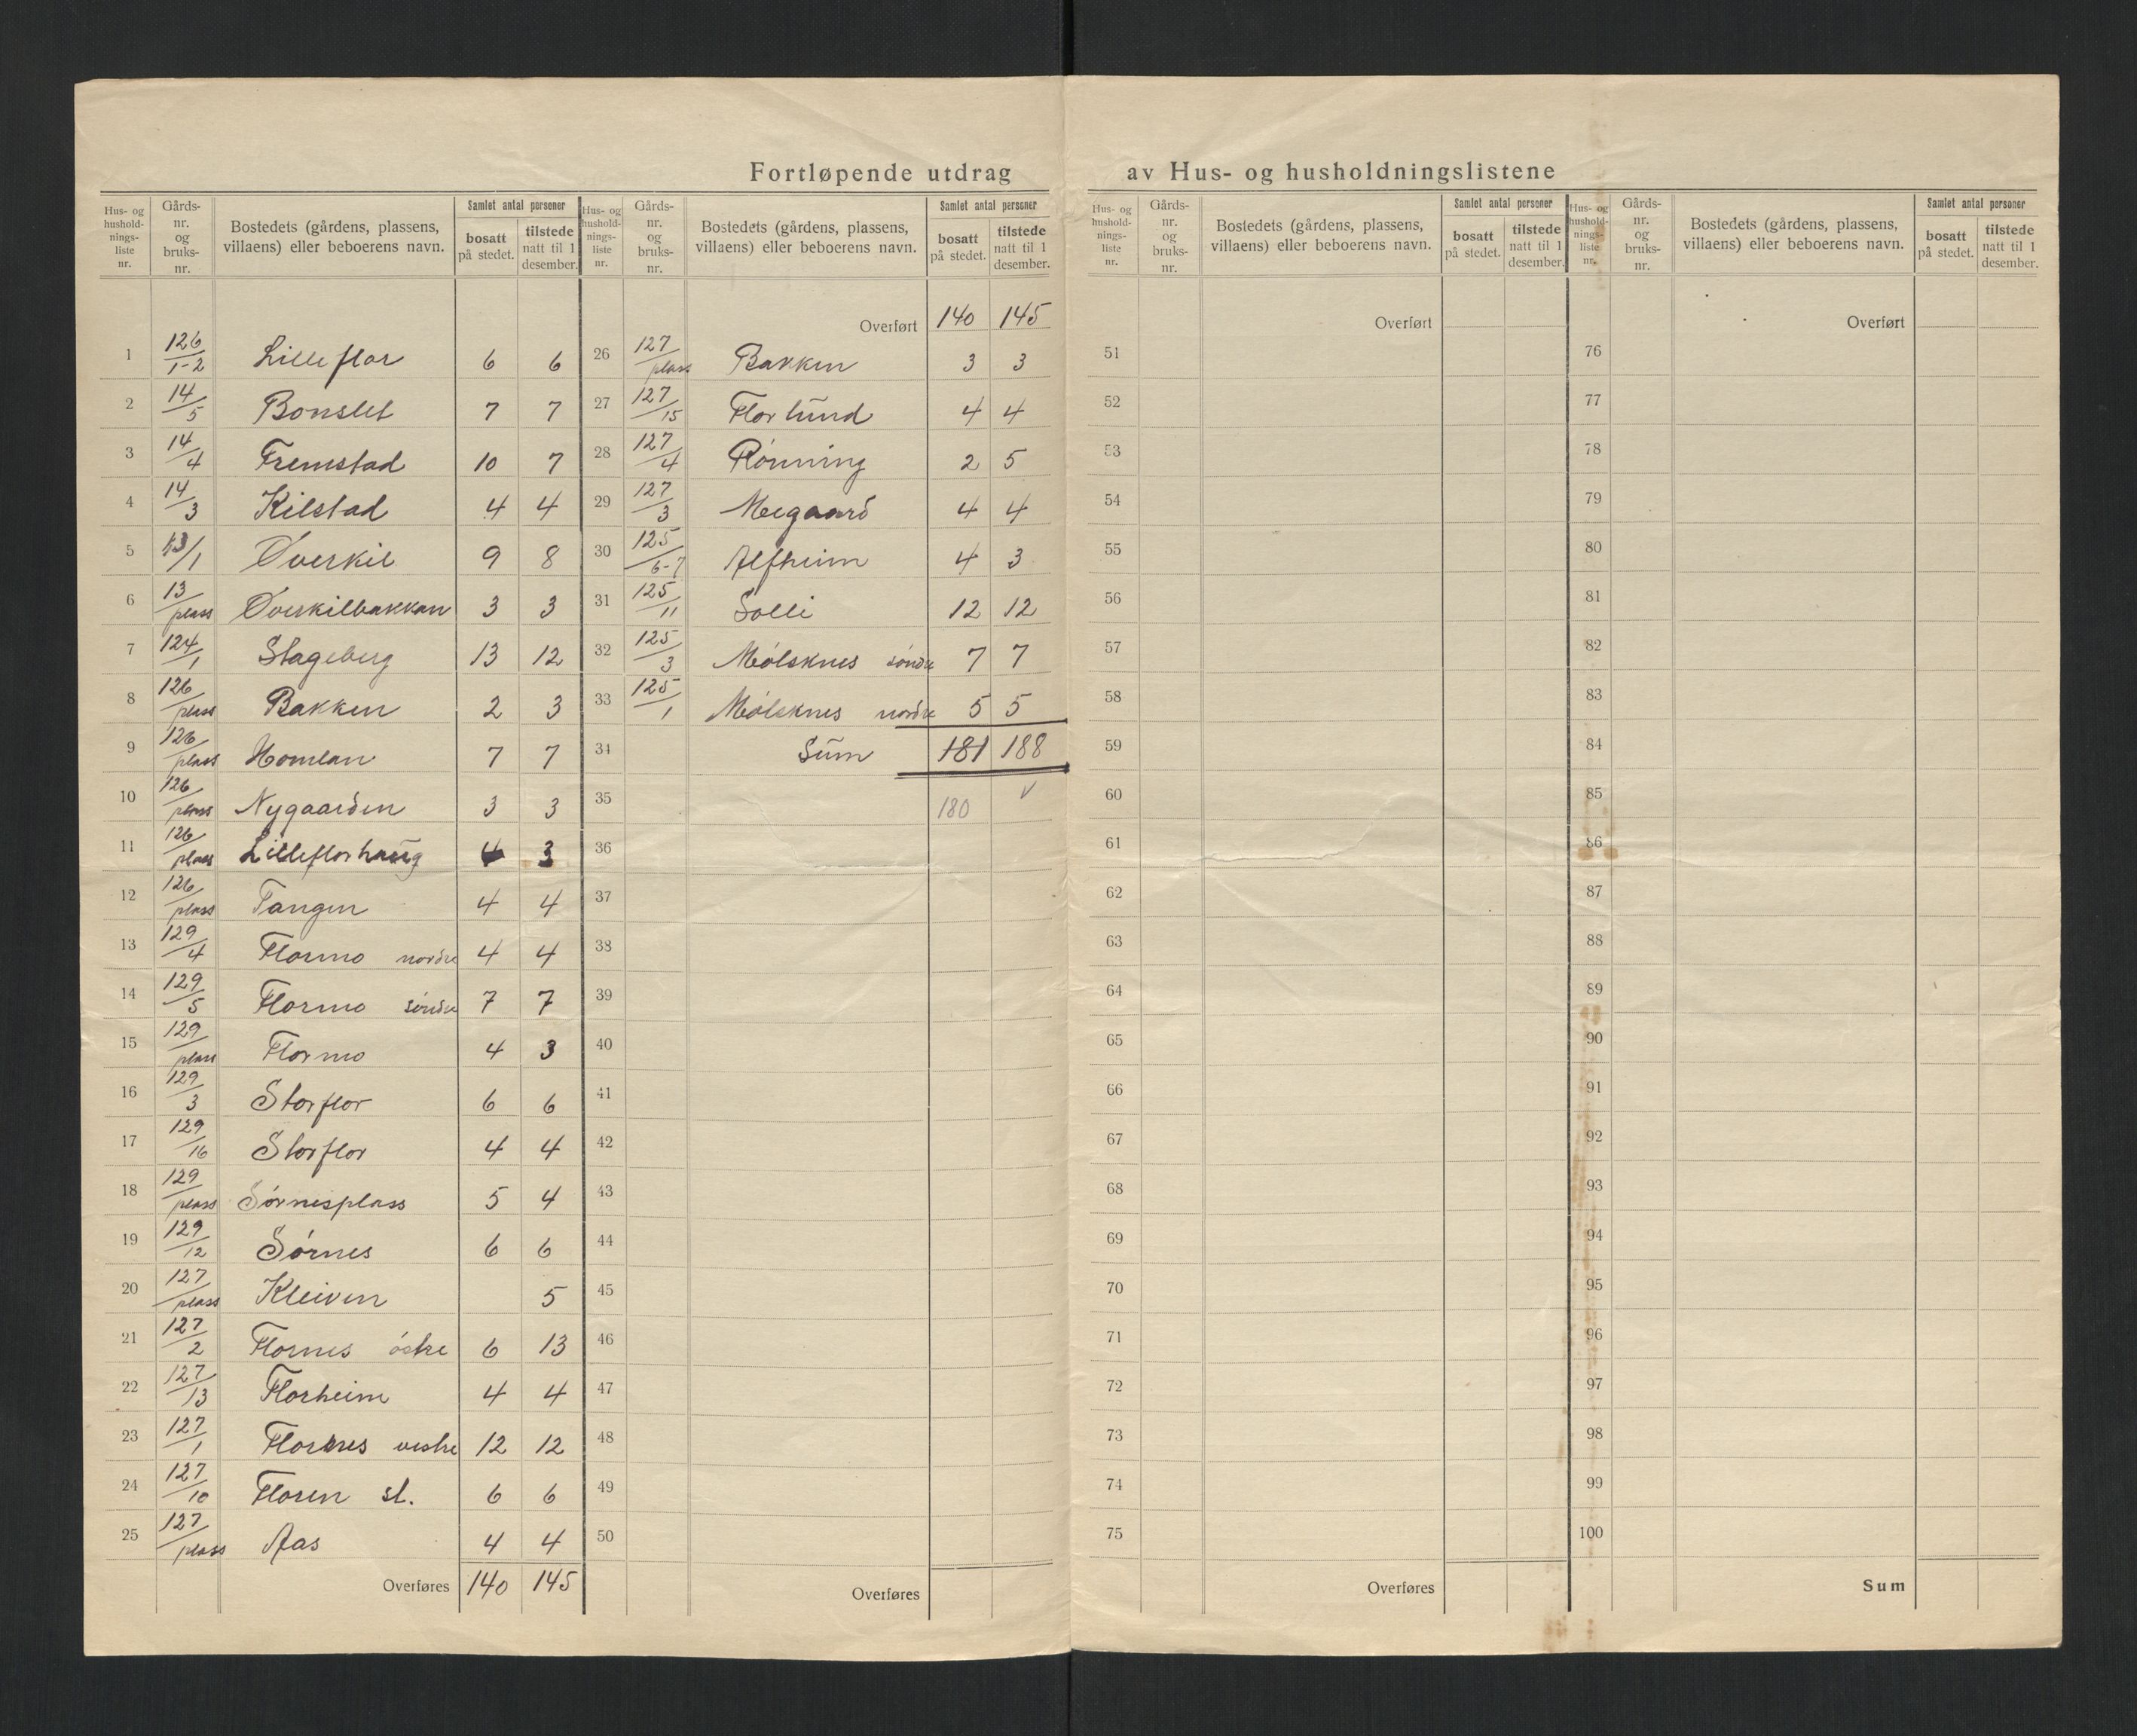 Fortløpende utdrag av Hus- og husholdningslistene
Hus- og hushold-nings-liste nr. | Gårds-nr. og bruks-nr. | Bostedets (gårdens, plassens, villaens) eller beboerens navn. | Samlet antal personer | bosatt på stedet. | tilstede natt til 1 desember.
1 126/1-2 Lilleflor 6 6
2 14/5 Bonslet 7 7
3 14/4 Fremstad 10 7
4 14/3 Kilstad 4 4
5 13/1 Øverkil 9 8
6 13/plass Øverkilbakkan 3 3
7 124/1 Stageberg 13 12
8 126/plass Bakken 2 3
9 126/plass Homlan 7 7
10 126/plass Nygaarden 3 3
11 126/plass Lilleflorhaug 4 3
12 126/plass Tangen 4 4
13 129/4 Flormo nordre 4 4
14 129/5 Flormo søndre 7 7
15 129/plass Flormo 4 3
16 129/3 Storflor 6 6
17 129/16 Storflor 4 4
18 129/plass Sørnesplass 5 4
19 129/12 Sørnes 6 6
20 127/plass Kleiven 5
21 127/2 Flornes østre 6 13
22 127/13 Florheim 4 4
23 127/1 Flornes vestre 12 12
24 127/10 Floren st. 6 6
25 127/plass Aas 4 4
Overføres 140 145
Hus- og hushold-nings-liste nr. | Gårds-nr. og bruks-nr. | Bostedets (gårdens, plassens, villaens) eller beboerens navn. | Samlet antal personer | bosatt på stedet. | tilstede natt til 1 desember.
Overført 140 145
26 127/plass Bakken 3 3
27 127/15 Florlund 4 4
28 127/4 Rønning 2 5
29 127/3 Megaard 4 4
30 125/6-7 Alfheim 4 3
31 125/11 Solli 12 12
32 125/3 Mølsknes søndre 7 7
33 125/1 Mølsknes nordre 5 5
34 Sum 181 188
35 180 √
36
37
38
39
40
41
42
43
44
45
46
47
48
49
50
Overføres
Hus- og hushold-nings-liste nr. | Gårds-nr. og bruks-nr. | Bostedets (gårdens, plassens, villaens) eller beboerens navn. | Samlet antal personer | bosatt på stedet. | tilstede natt til 1 desember.
Overført
51
52
53
54
55
56
57
58
59
60
61
62
63
64
65
66
67
68
69
70
71
72
73
74
75
Overføres
Hus- og hushold-nings-liste nr. | Gårds-nr. og bruks-nr. | Bostedets (gårdens, plassens, villaens) eller beboerens navn. | Samlet antal personer | bosatt på stedet. | tilstede natt til 1 desember.
Overført
76
77
78
79
80
81
82
83
84
85
86
87
88
89
90
91
92
93
94
95
96
97
98
99
100
Sum